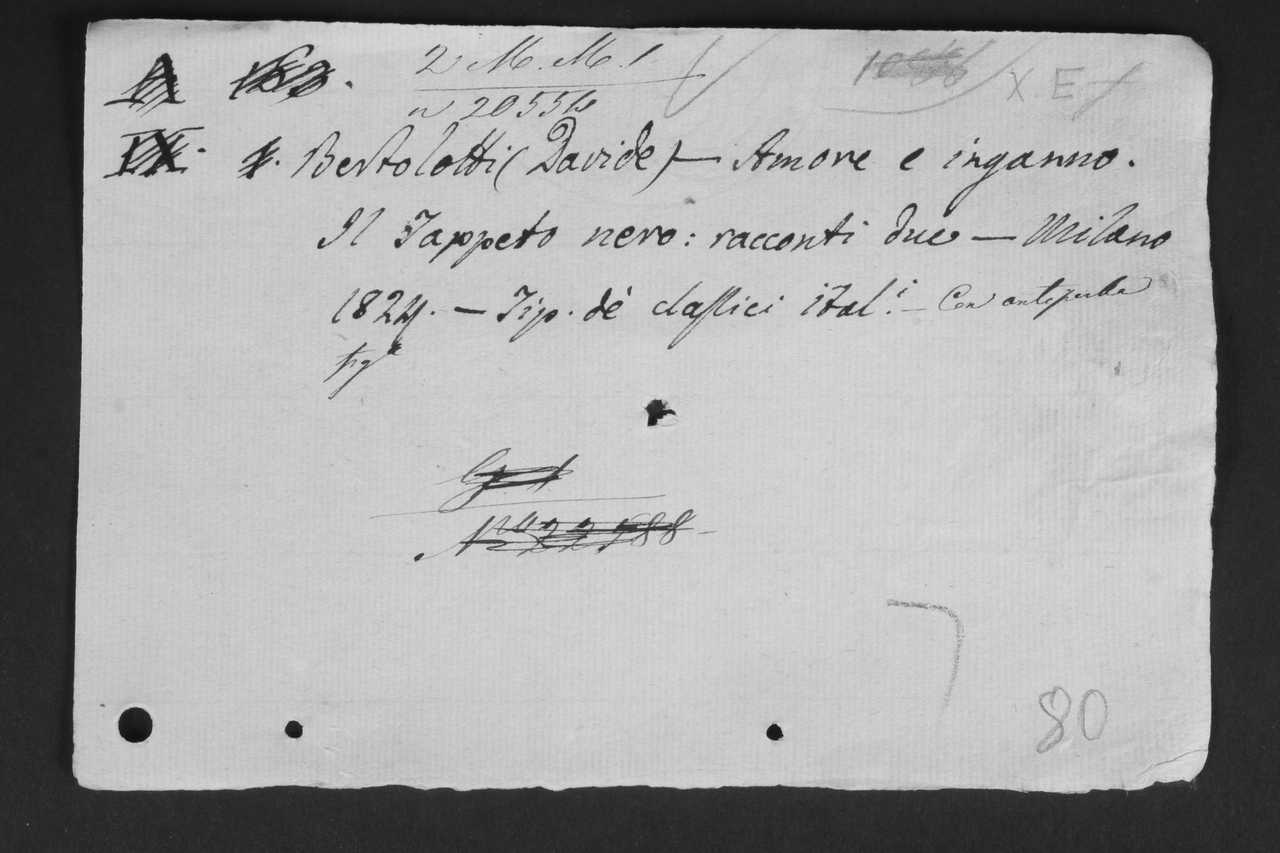 2 M. M. 1. 
X E
Bertolotti (Davide) — Amore e inganno.
Il Tappeto nero: racconti due — Milano
1824. — Tip. de' classici ital.i — Con antiporta
fig.a
80